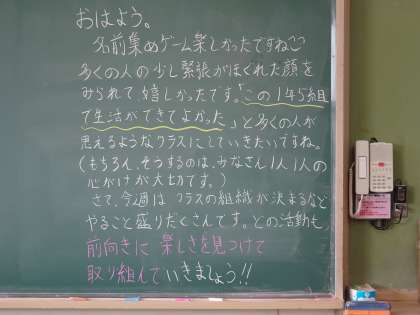 おはよう。
名前集めゲーム楽しかったですね
多くの人の少し緊張がほぐれた顔を
みられて嬉しかったです。「この145組
で生活ができてよかった」と多くの人が
思えるようなクラスにしていきたいですね。
(もちろん、そうするのは、みなさん1人1人の
心がけが大切です。)
さて、今週は クラスの組織が決まるなど
やること盛りだくさんです。どの活動も
前向きに 楽しさを見つけて
取り組んでいきましょう!!